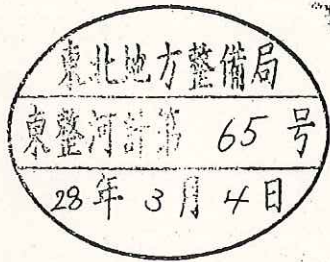 東北地方整備局
東整河計第 65 号
28年 3月 4日